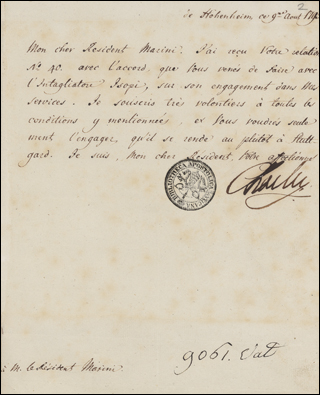 2
de Hohenheim ce 9me Aout
Mon cher Resident Marini. J'ai reçu Votre relation
No 40. avec l'accord, que Vous venés de faire avec
l'Intagliatou Isopi, sur son engagement dans Mes
services. Je souscris très volontiers à toutes les
conditions y mentionnées, et Vous voudrés seule-
ment l'engager, qu'il se rende au plutôt à Stutt-
gard. Je suis, Mon cher Résident, Votre affectionné
Charles
BIBLIOTHECA APOSTOLICA VATICANA
9061. Vat
à M. le Résident Marini